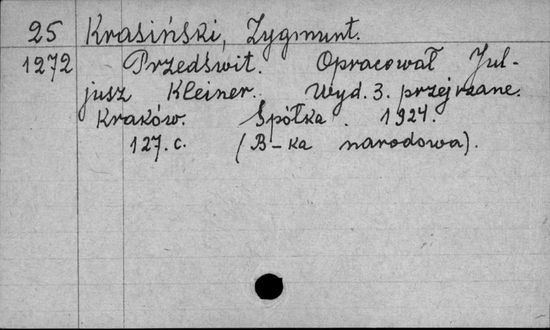 25 Krasiński, Zygmunt.
1272 Przedświt. Opracował Jul-
jusz Kleiner. Wyd. 3. przejrzane.
Kraków. Spółka. 1924.
127. c. (B-ka narodowa).